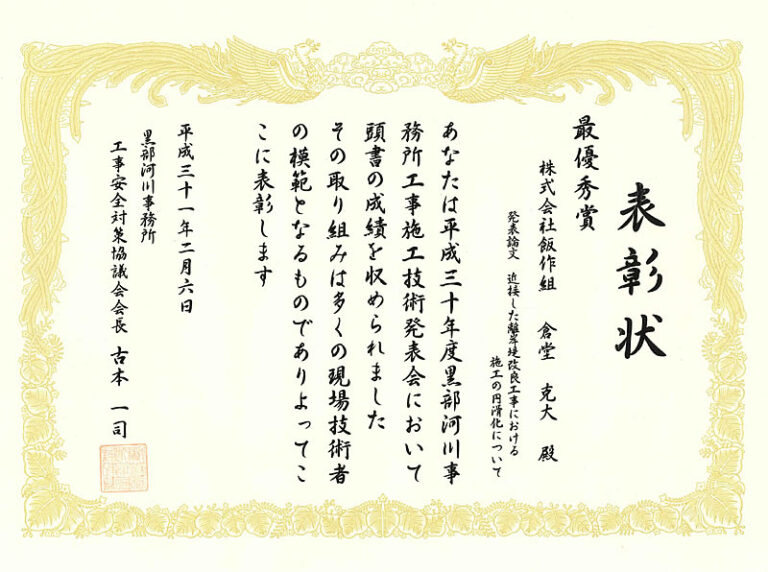 表彰状
最優秀賞
株式会社飯作組 倉堂 克大 殿
発表論文 近接した離岸堤改良工事における
施工の円滑化について
あなたは平成三十年度黒部河川事
務所工事施工技術発表会において
頭書の成績を収められました
その取り組みは多くの現場技術者
の模範となるものでありよってこ
こに表彰します
平成三十一年二月六日
黒部河川事務所
工事安全対策協議会会長 古本 一司